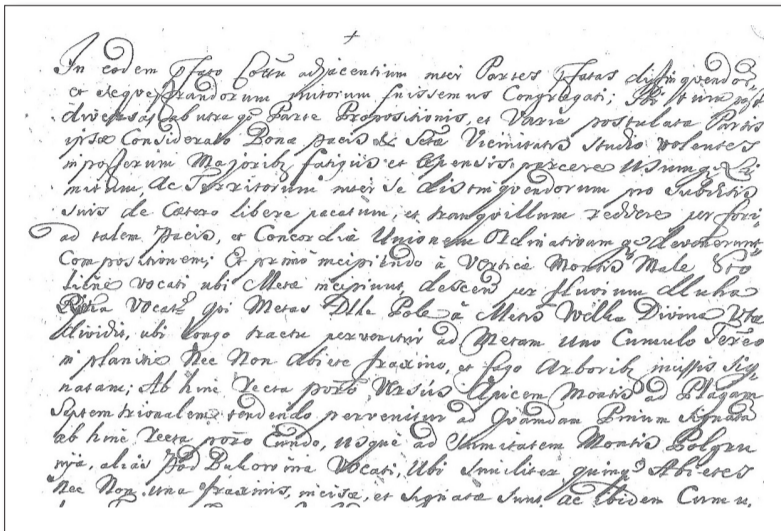 In eodem pfato Cottu adjacentium inter Partes pfatas distinquendor
et sequestrandorum mitorum fuissemus Congregati; Ibi tum post
diversas ab utraq Parte Propositionis, et Varia postulata Partis
ipsæ Considerato Bonæ pacis & Sctæ Vicinitatis studio volentes
inposterum Majorib fatigiis et Expensis parcere Usumq Li
mitum, ac Territorium inter se distinquendorum pro Subditis
suis de Cætero libere pacatum, et tranquillum reddere per fori
ad talem Pacis, et Concordiæ Unionem Ordinativam devenerunt
Compositionem; Et primo incipiendo à Vertice Montis Male Sto
licne Vocati ubi Metæ incipiunt, descend per fluvium Mutna
Rika Vocat qui Metas Dlle Pole à Metis Welka Divina Utæ
dividit, ubi longo tractu pervenitur ad Metam uno Cumulo Terreo
in planitie Nec Non Abiete fraxino, et fago Arborib incissis Sig
natam; Ab hinc recta porro Versus Apicem Montis ad Plagam
Septemtrionalem tendendo pervenitur ad Quamdam Pinum Signata
ab hinc recta porro Eundo, usque ad Sumitatem Montis Polgru
nja, aliàs Pod Bukowina Vocati, Ubi similiter quinq Abietes
Nec Non una fraxinis, incisæ, et signatæ Sunt, ac Ibidem Cumu.